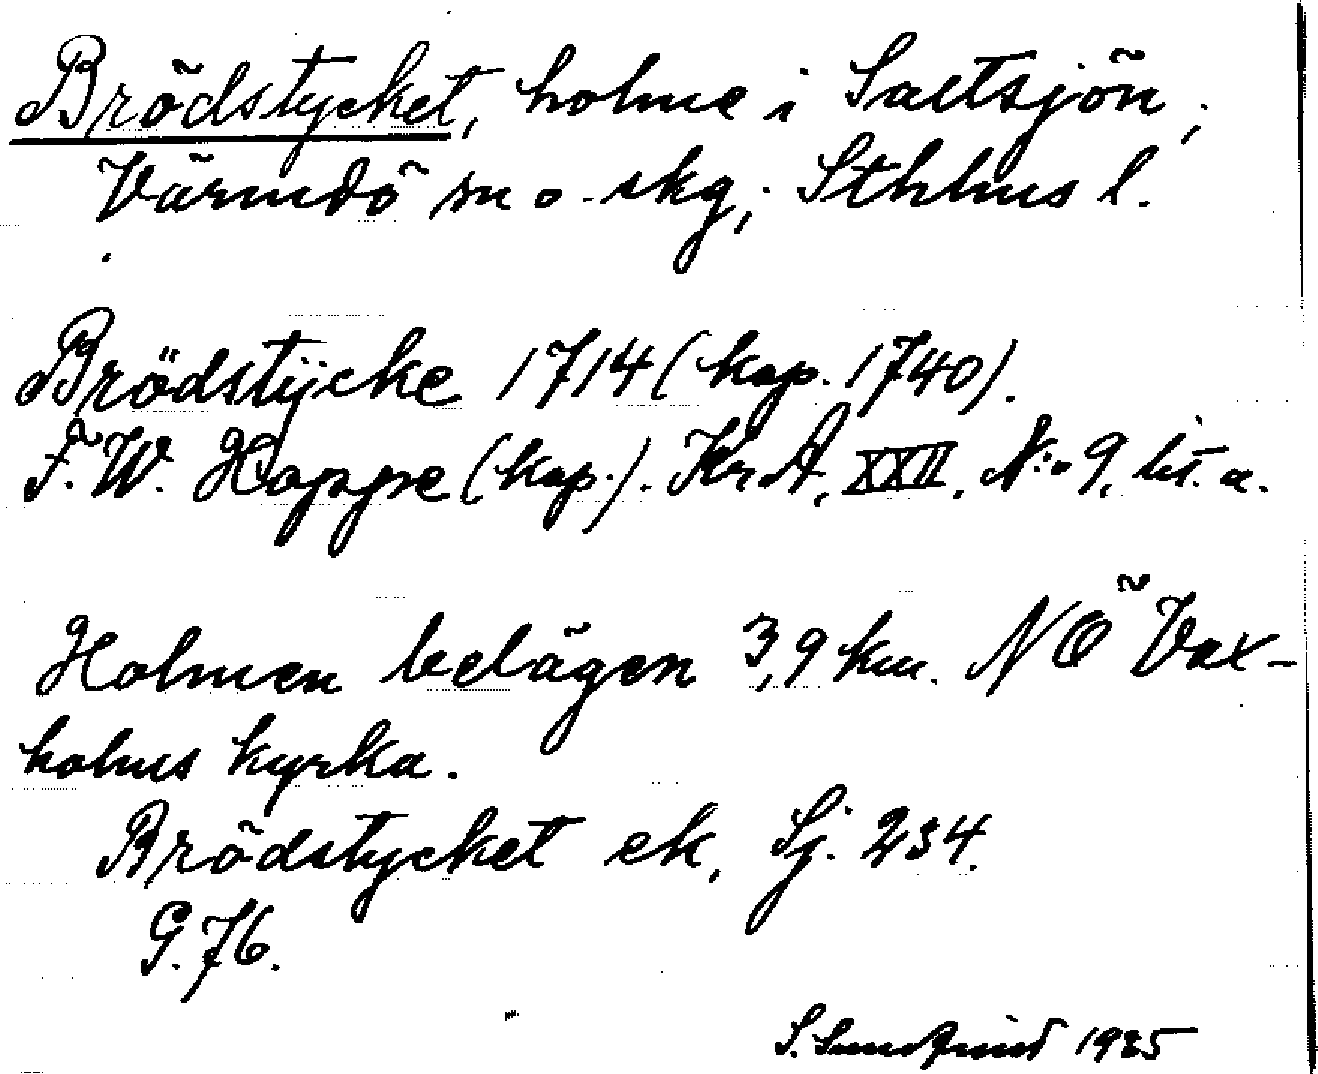 Brödstycket, holme i Saltsjön,
Värmdö sn o. skg, Sthlms l.
Brödstÿcke 1714 (kop. 1740).
F. W. Hoppe (kop.). Kr.A. XXII, N:o 9, lit. a.
Holmen belägen 3,9 km. NÖ Vax-
holms kyrka.
Brödstycket ek, Sj. 234.
G. 76.
S. 1925